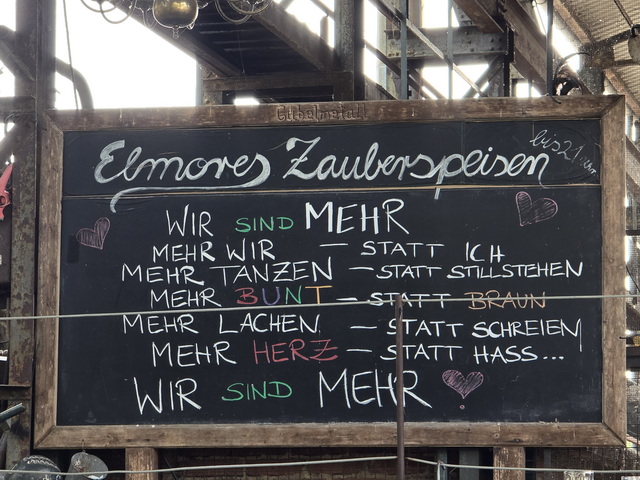 Elmores Zauberspeisen bis 21 Uhr
WIR SIND MEHR
MEHR WIR — STATT ICH
MEHR TANZEN — STATT STILLSTEHEN
MEHR BUNT — STATT BRAUN
MEHR LACHEN — STATT SCHREIEN
MEHR HERZ — STATT HASS...
WIR SIND MEHR